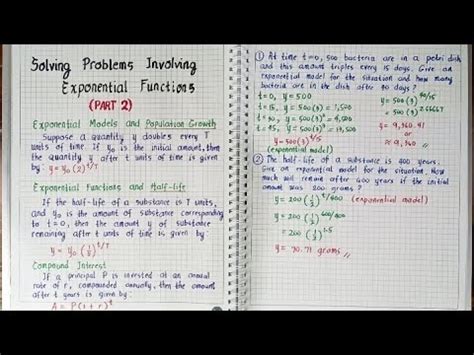 Solving Problems Involving
Exponential Functions
(PART 2)
Exponential Models and Population Growth
Suppose a quantity y doubles every T
units of time. If y₀ is the initial amount, then
the quantity y after t units of time is given
by: y = y₀ (2)^t/T
Exponential Functions and Half-life
If the half-life of a substance is T units,
and y₀ is the amount of substance corresponding
to t=0, then the amount y of substance
remaining after t units of time is given by
y = y₀ (1/2)^t/T
Compound Interest
If a principal P is invested at an annual
rate of r, compounded annually, then the amount
after t years is given by:
A = P(1+r)^t
① At time t=0, 500 bacteria are in a petri dish
and this amount triples every 15 days. Give an
exponential model for the situation and how many
bacteria are in the dish after 40 days?
t=0, y=500
t=15, y=500(3)=1,500
t=30, y=500(3)²=4,500
t=45, y=500(3)³=13,500
y=500(3)^t/15
(exponential model)
y=500(3)^40/15
=500(3)^2.66667
y=9,360.41
or
≈ 9,360
② The half-life of a substance is 400 years.
Give an exponential model for the situation. How
much will remain after 600 years if the initial
amount was 200 grams?
y = 200 (1/2)^t/400 (exponential model)
y = 200 (1/2)^600/400
= 200 (1/2)^1.5
y = 70.71 grams